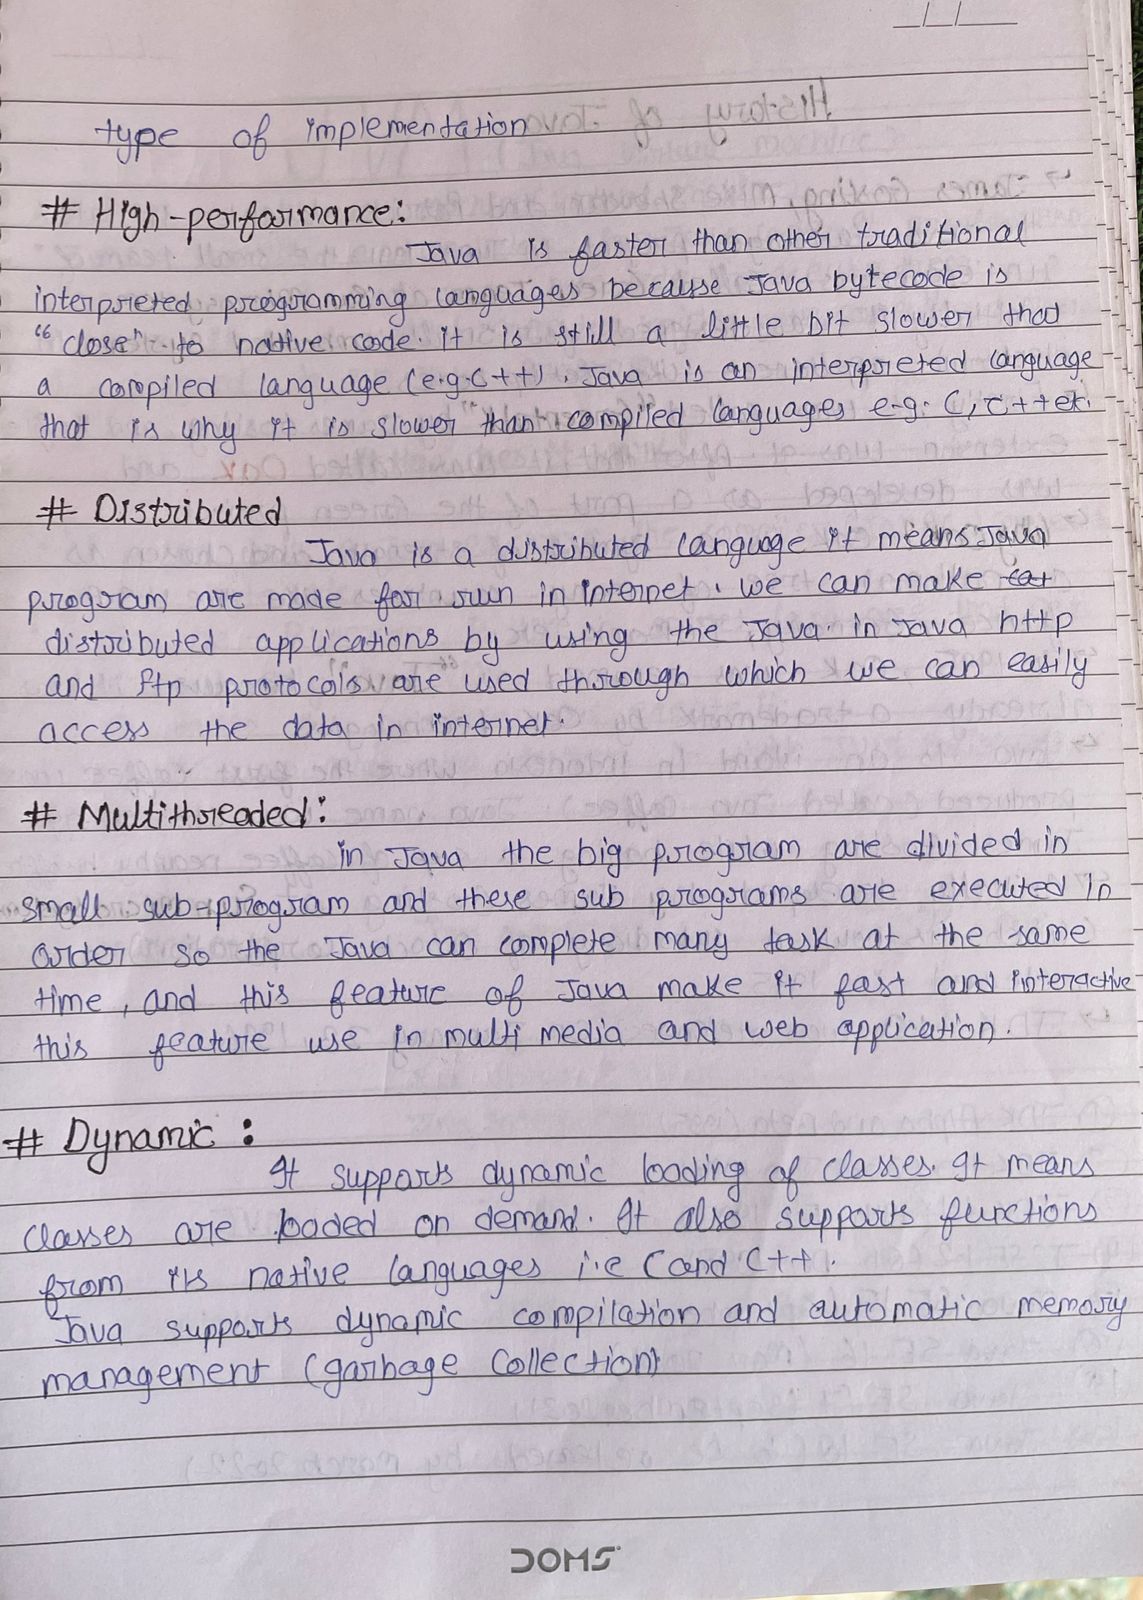 type of implementation
# High-performance:
Java is faster than other traditional
interpreted programming languages because Java bytecode is
"close" to native code. it is still a little bit slower that
a compiled language (e.g. C++). Java is an interpreted language
that is why it is slower than compiled languages e.g. C, C++ etc.
# Distributed
Java is a distributed language it means Java
program are made for run in internet. we can make
distributed applications by using the Java. in Java http
and ftp protocols are used thorough which we can easily
access the data in internet.
# Multithreaded:
in Java the big program are divided in
small sub-program and these sub programs are executed in
order so the Java can complete many task at the same
time, and this feature of Java make it fast and interactive
this feature use in multi media and web application.
# Dynamic:
It supports dynamic loading of classes. It means
classes are loaded on demand. It also supports functions
from its native languages i.e C and C++.
Java supports dynamic compilation and automatic memory
management (garbage collection)
DOMS